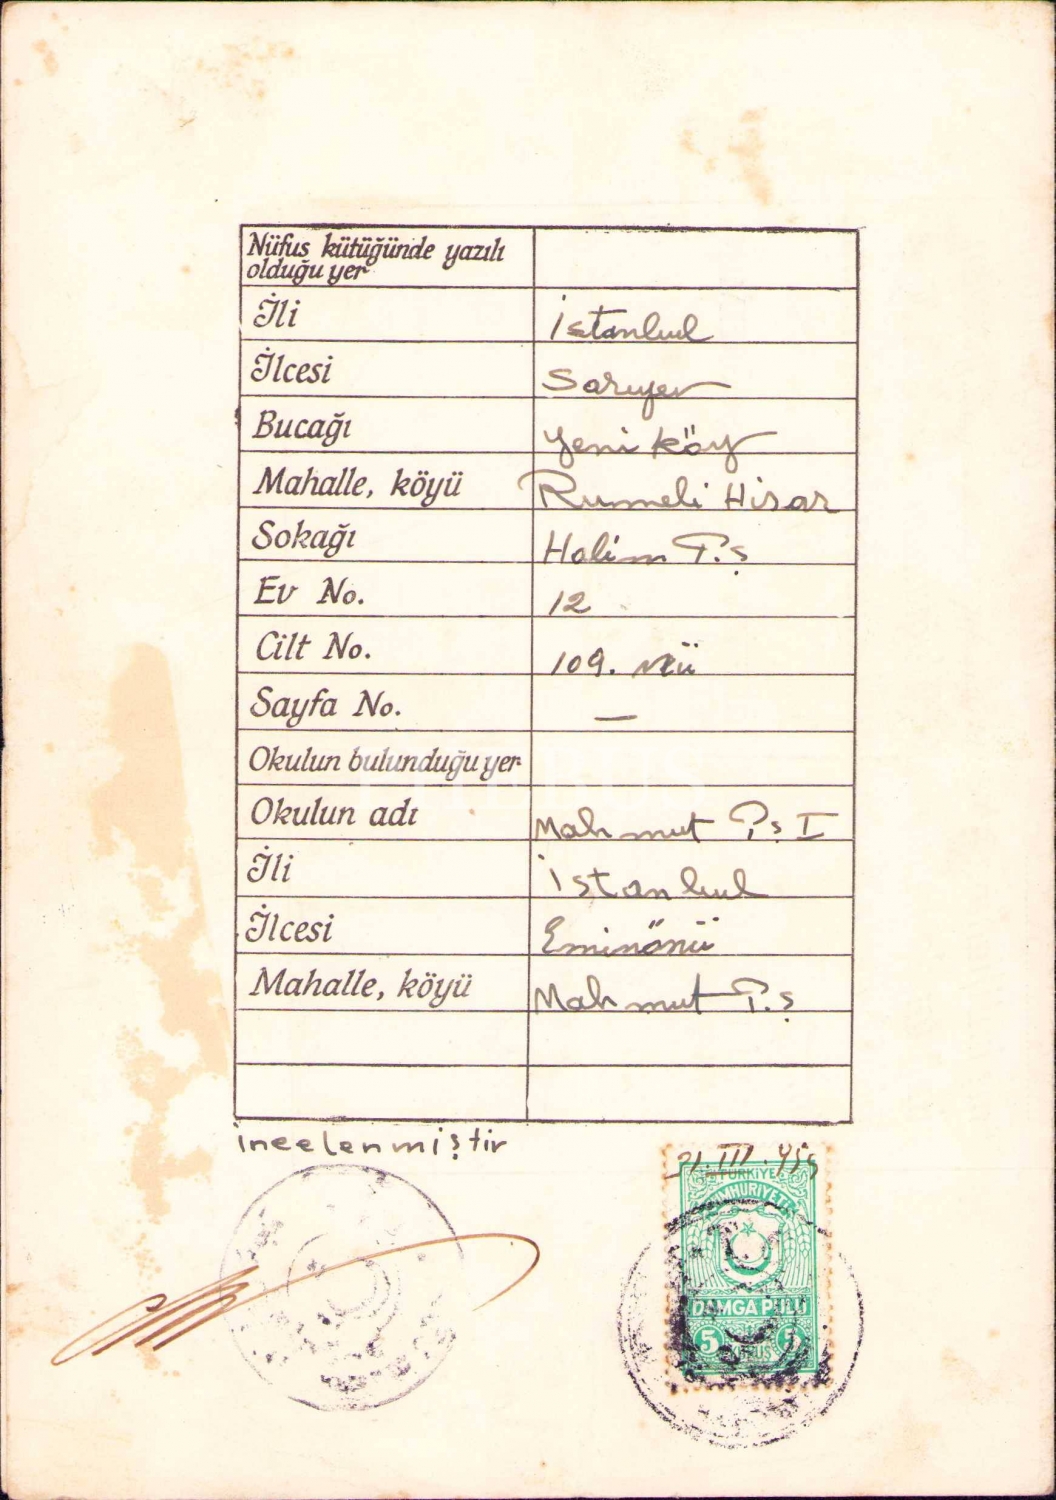 Nüfus kütüğünde yazılı
olduğu yer
İli İstanbul
İlcesi Sarıyer
Bucağı Yeni köy
Mahalle, köyü Rumeli Hisar
Sokağı Halim P.ş
Ev No. 12
Cilt No. 109.
Sayfa No. —
Okulun bulunduğu yer
Okulun adı Mahmut P.ş I
İli İstanbul
İlcesi Eminönü
Mahalle, köyü Mahmut P.ş
incelenmiştir
TÜRKİYE
CUMHURİYETİ
DAMGA PULU
5 KURUŞ